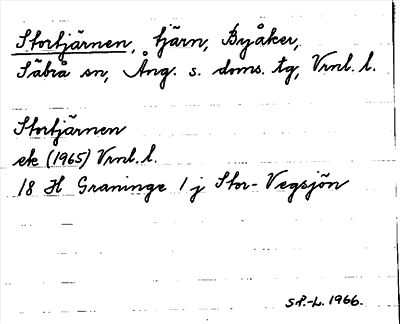 Stortjärnen, tjärn, Byåker,
Säbrå sn, Ång. s. doms. tg, Vrnl. l.
Stortjärnen
ek (1965) Vrnl. l.
18 H Graninge 1 j Stor-Vegsjön
S.P.-L. 1966.